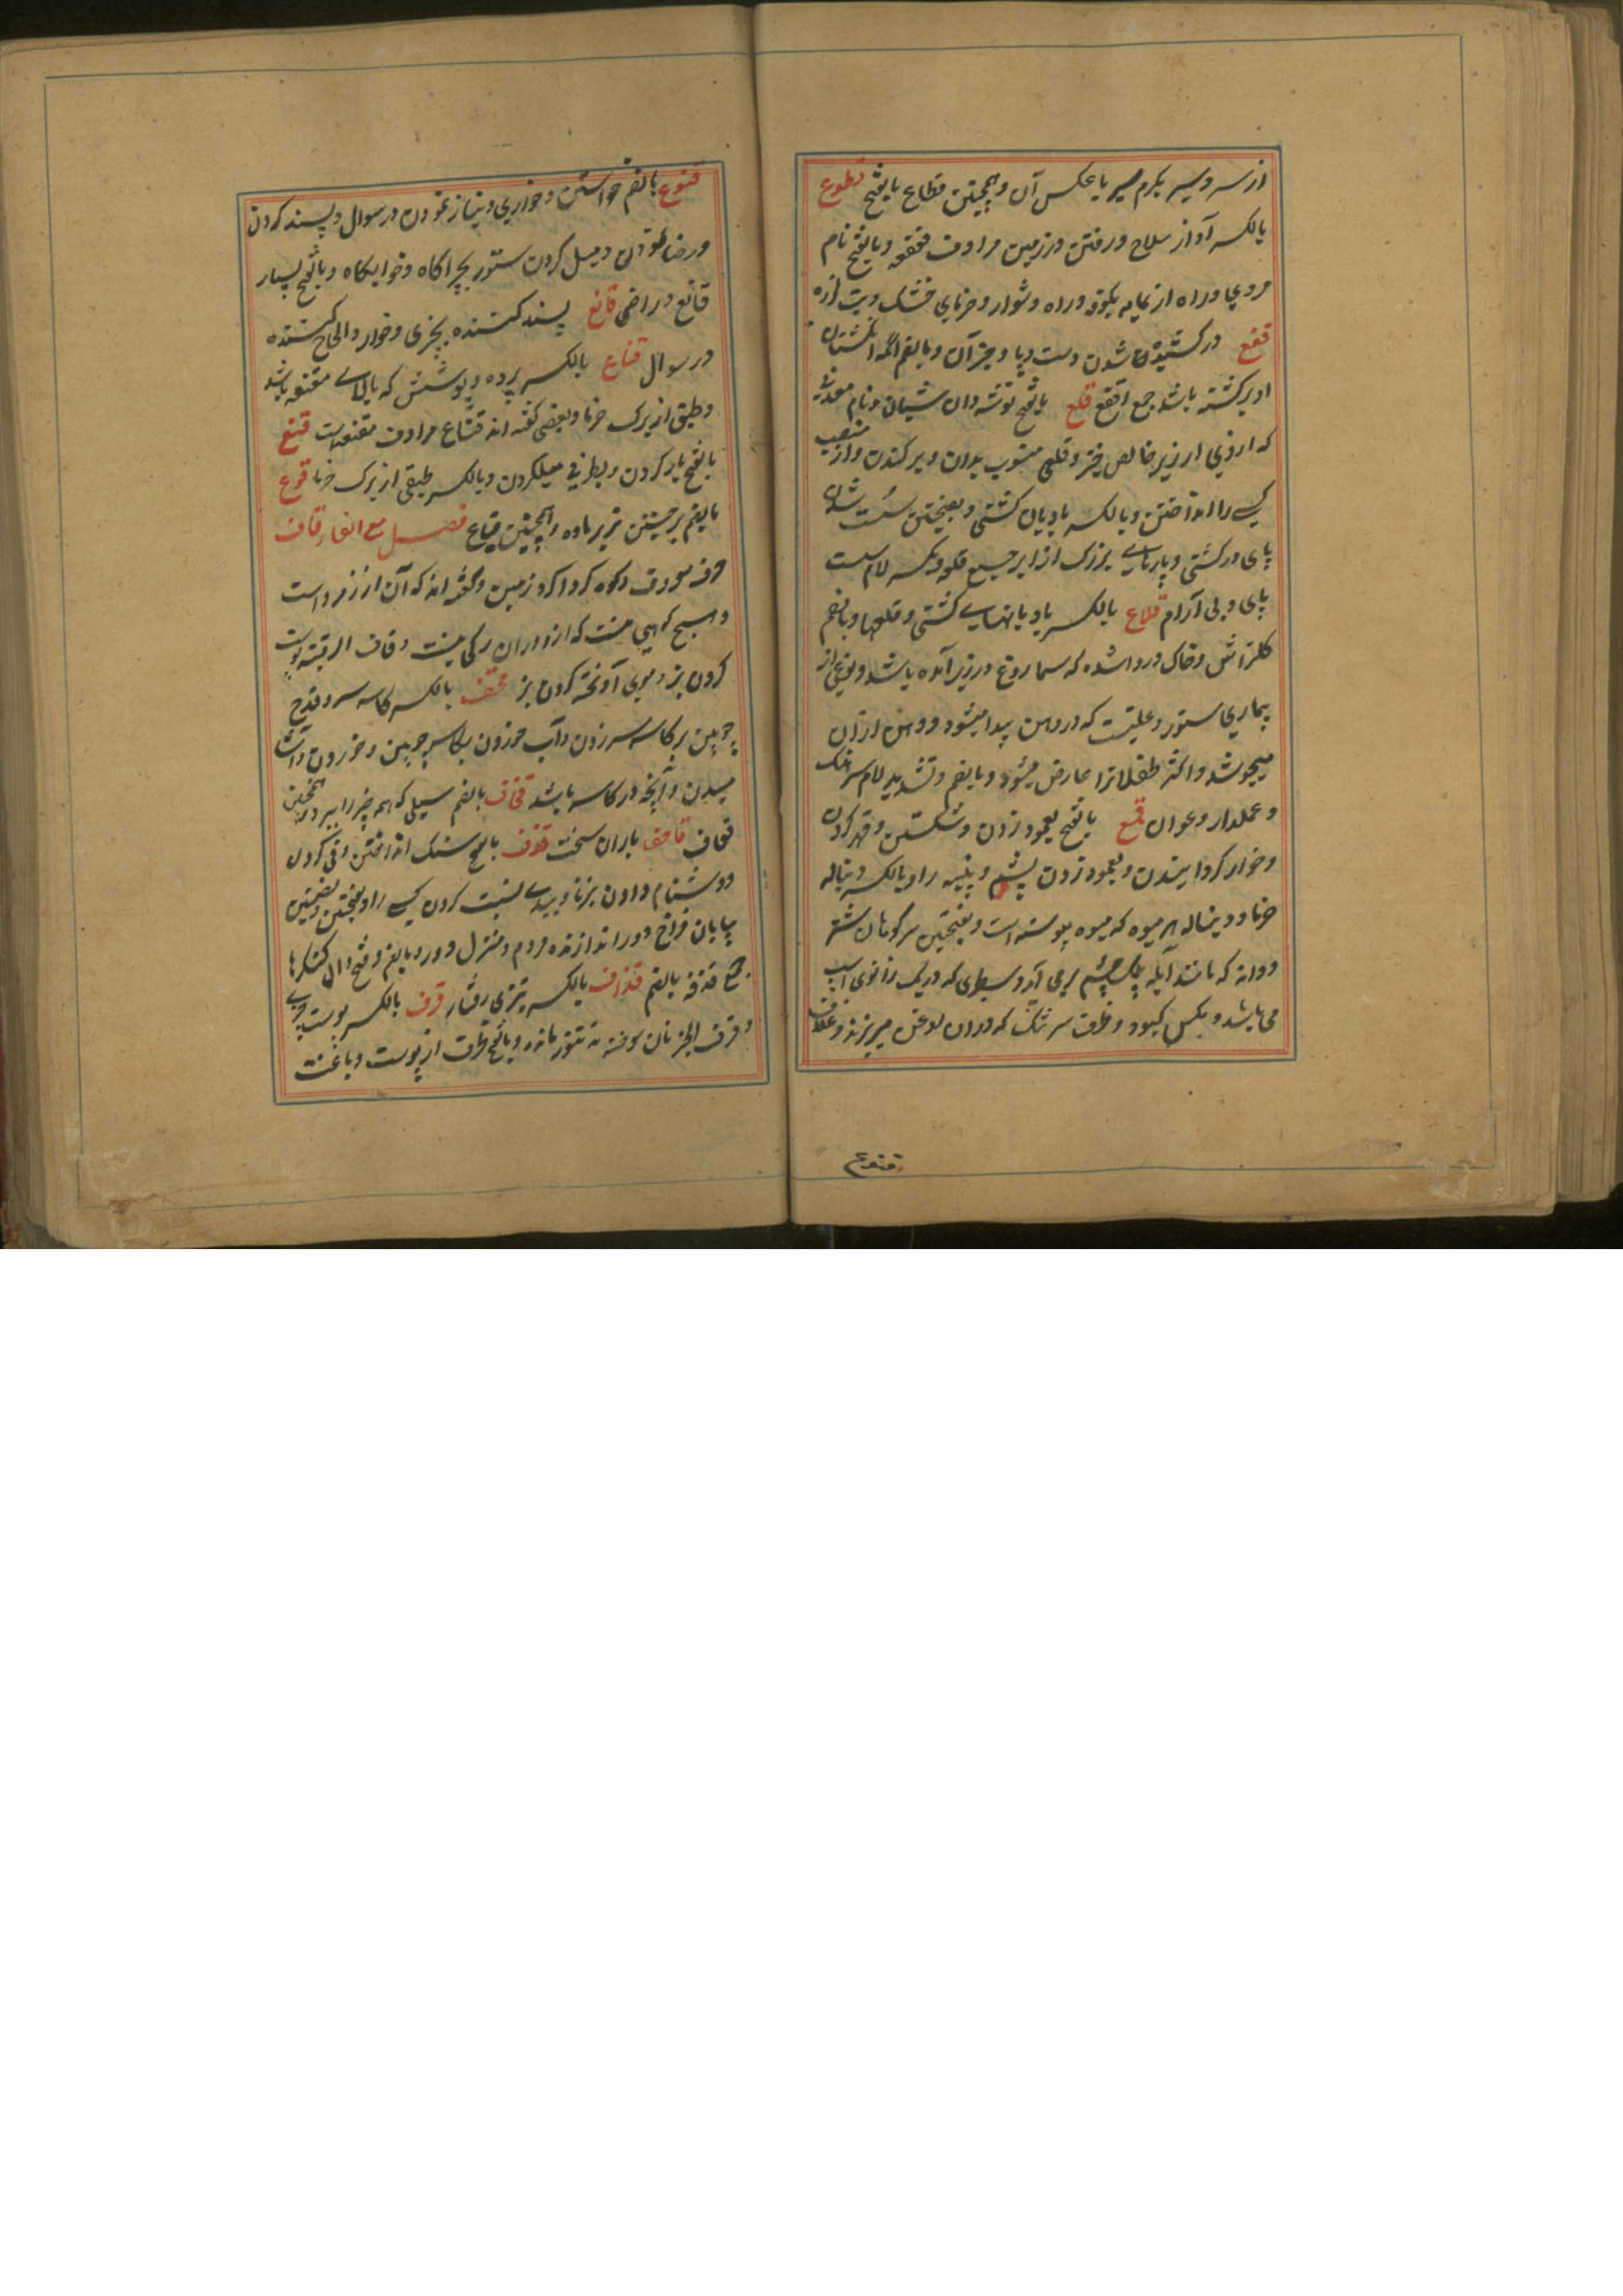 از سر و سیر بکرم سیر یا عکس آن و همچنین قطاع بالفتح قطوع
بالکسر آواز سلاح و رفتن در زمین مرادف قعقعه و بالفتح نام
مردی و راه از یمامه بکوفه و راه دشوار و خرمای خشک و تب لرزه
قفع در کشیده شدن دست و پا و جز آن و بالضم آنکه انکشتان
او برکشته باشد جمع اقفع قلع بالفتح توشه دان شبان و نام معدنی
که از وی ارزیز خالص خیزد و قلعی منسوب بدان و برکندن و از منصب
کسی را انداختن و بالکسر بادبان کشتی و بفتحتین سست شدن
پای در کشتی و پارهای بزرک از ابر جمع قلعه و بکسر لام سست
پای و بی آرام قلاع بالکسر بادبانهای کشتی و قلعها و بالضم
کلتراش و خاک در و اشده که سماروغ در زیر آمده باشد و نوعی از
بیماری ستور و علتیست که در دهن پیدا میشود و دهن از آن
میجوشد و اکثر طفلانرا عارض میشود و بالضم و تشدید لام سرهنک
و عملدار و عوان قمع بالفتح بعمود زدن و شکستن و قهر کردن
و خوار کردانیدن و بعمود زدن پشم و پنبه را و بالکسر دنباله
خرما و دنباله هر میوه که میوه پیوسته است و بفتحتین سرکوهان شتر
و دانه که مانند آبله بپلک چشم برمی آید و سطبری که در یک زانوی اسب
می باشد و مکس کبود و ظرف سر تنک که در ان روغن میریزند و غلاف
قنوع
قنوع بالضم خواستن و خواری و نیاز نمودن در سوال و پسند کردن
و رضا نمودن و میل کردن ستور بچراکاه و خوابکاه و بالفتح بسیار
قانع و راضی قانع پسند کننده بچیزی و خوار و الحاح کننده
در سوال قناع بالکسر پرده و پوشش که بالای مقنعه باشد
و طبق از برک خرما و بعضی کفته اند قناع مرادف مقنعه است قنع
بالفتح باز کردن و بطرفی میلکردن و بالکسر طبقی از برک خرما قوع
بالضم برجستن نر بر ماده و همچنین قیاع فصل مع الفاء قاف
حرف معروف و کوه کرداکرد زمین و کفته اند که آن از زمرد است
و هیچ کوهی نیست که از و در ان رکی نیست و قاف الرقبة پوست
کردن بز و موی آویخته کردن بز قحف بالکسر کاسه سر و قدح
چوبین بر کاسه سر زدن و آب خوردن بکاسه چوبین و خوردن و آشا
میدن و آنچه در کاسه باشد قحاف بالضم سیلی که همه چیز را ببرد و همچنین
قعاف قاحف باران سخت قذف بالفتح سنک انداختن و قی کردن
و دشنام دادن بزنا و ببدی نسبت کردن کسی را و بفتحتین و بضمتین
بیابان فراخ و دور اندازنده مردم و منزل دور و بالضم و فتح ذال کنکرها
جمع قذفه بالضم قذاف بالکسر تیزی رفتار قرف بالکسر پوست چیزی
و قرف الخبز نان سوخته که بتنور ماند و بالفتح ظرف از پوست دباغت